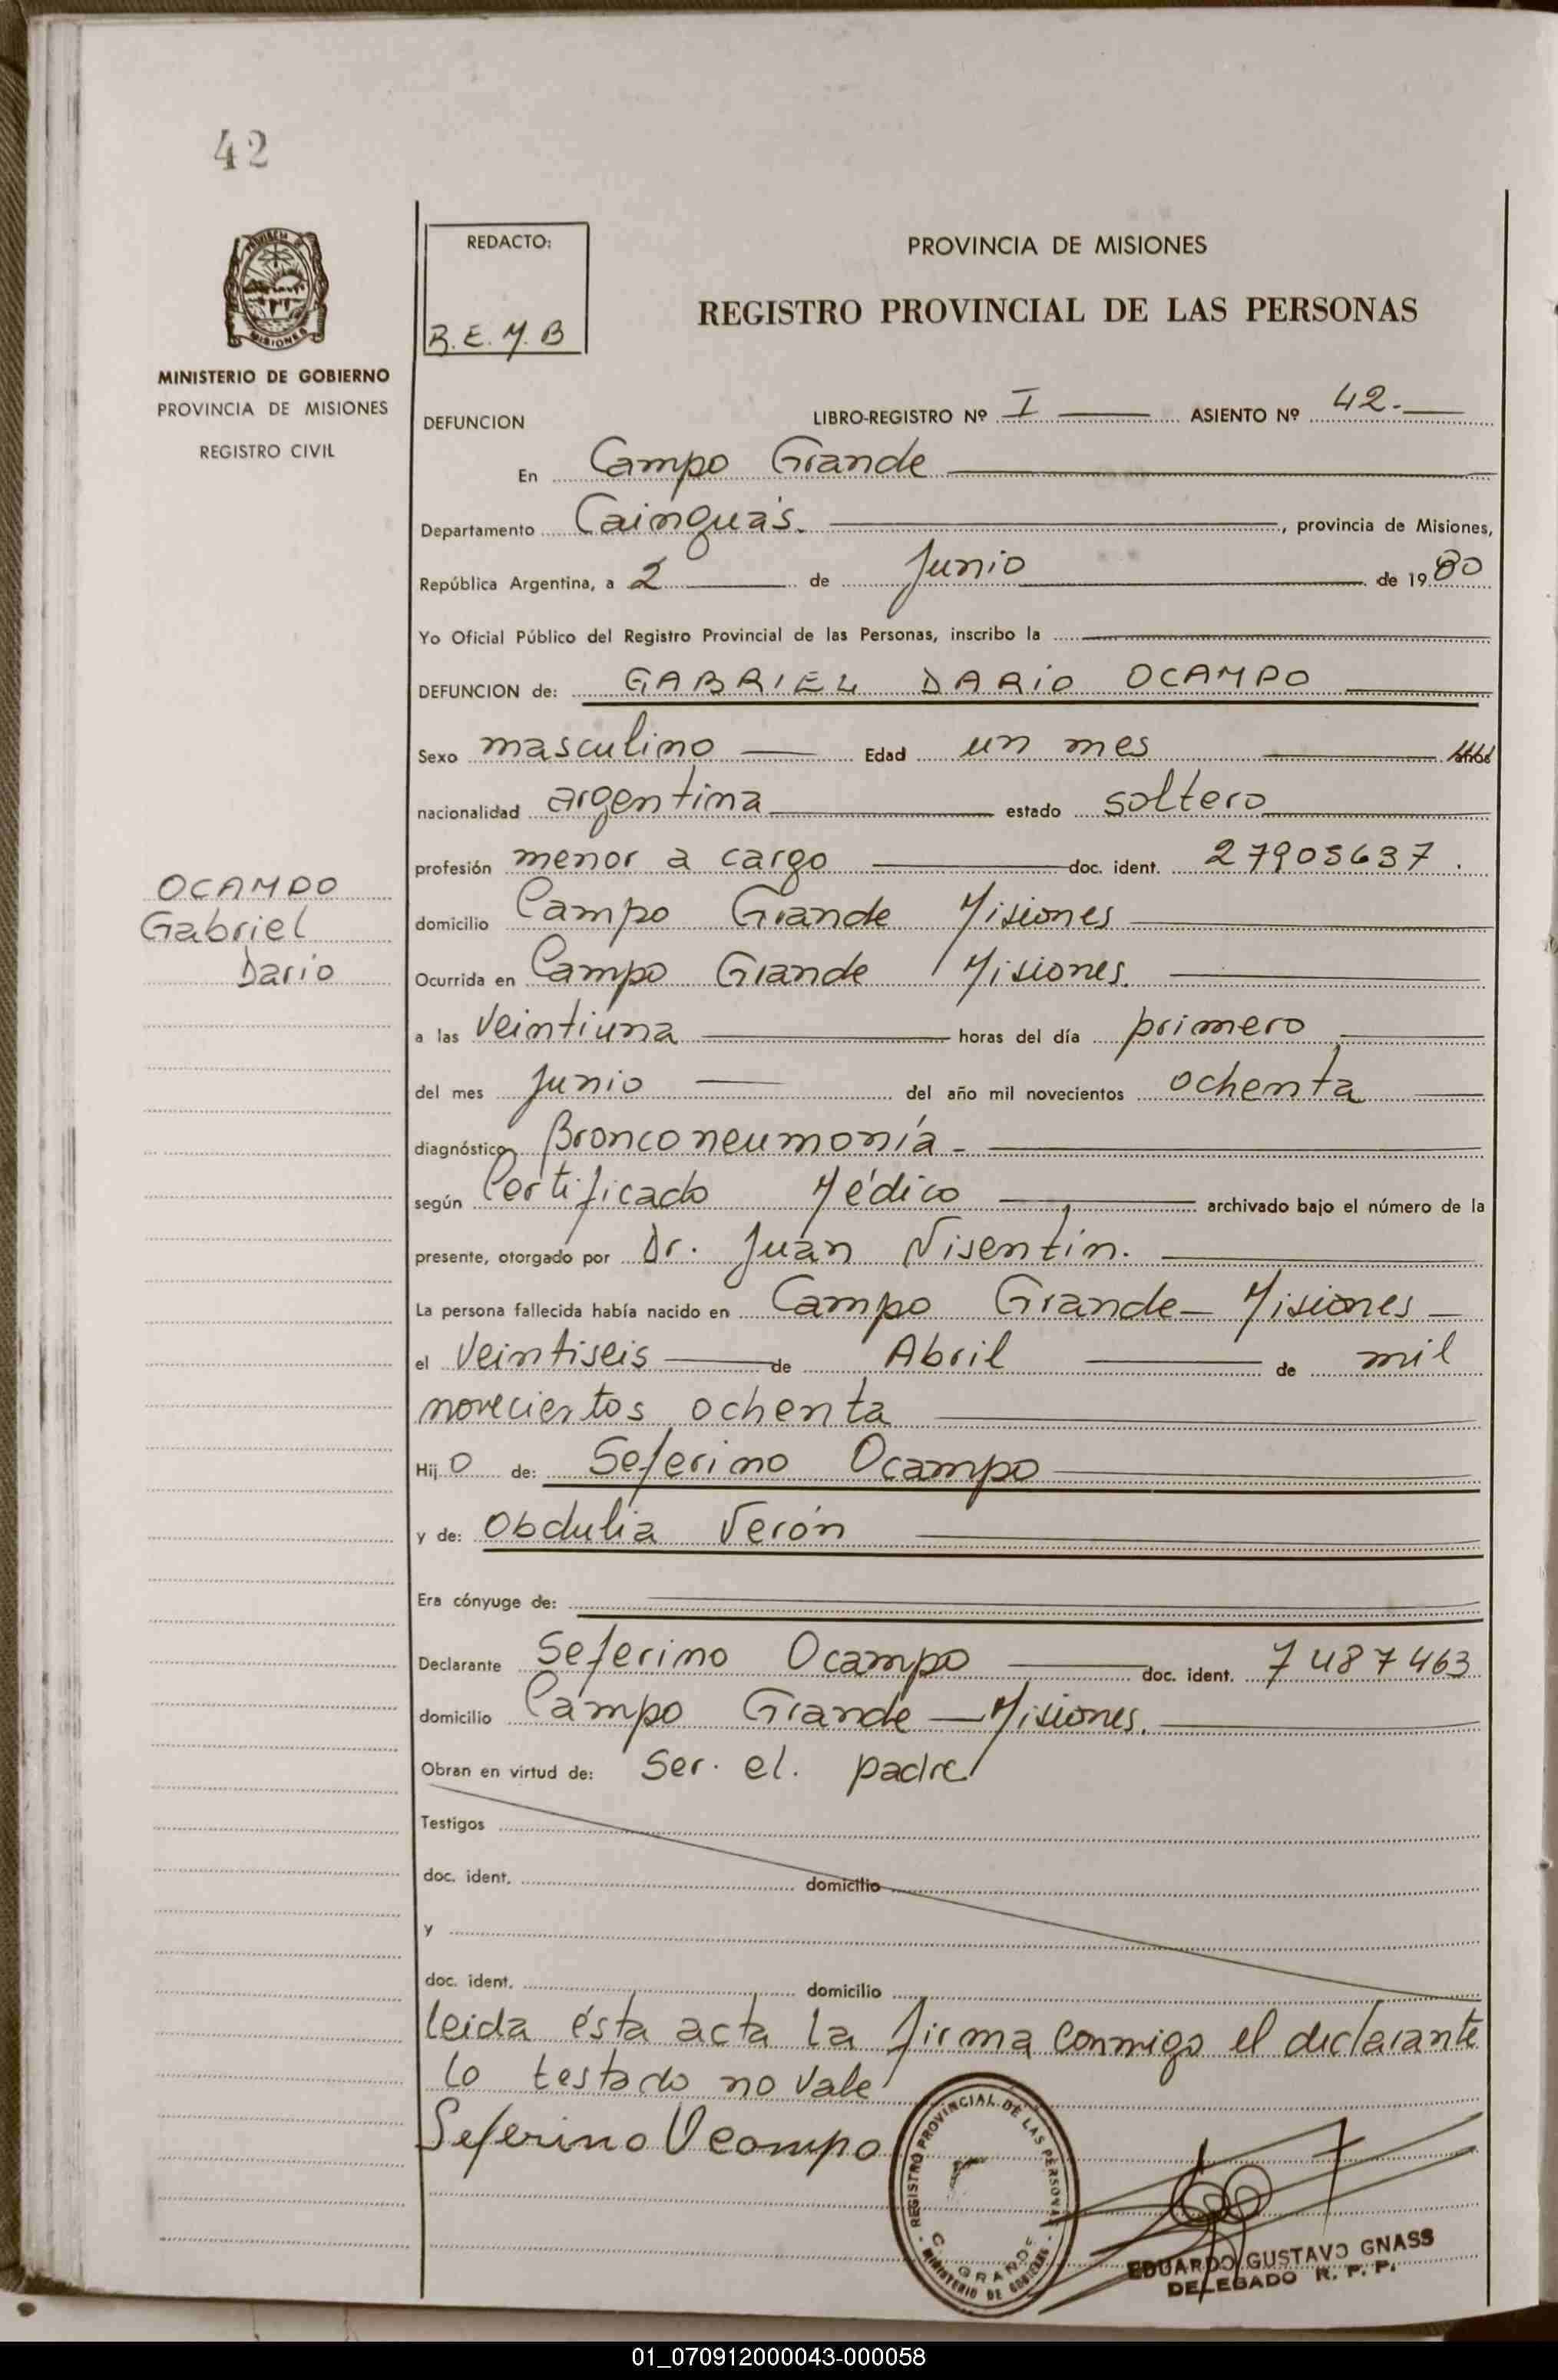 42
MINISTERIO DE GOBIERNO
PROVINCIA DE MISIONES
REGISTRO CIVIL
REDACTO:
R.E.M.B
PROVINCIA DE MISIONES
REGISTRO PROVINCIAL DE LAS PERSONAS
DEFUNCION LIBRO-REGISTRO Nº I ASIENTO Nº 42.
En Campo Grande
Departamento Cainguás. , provincia de Misiones,
República Argentina, a 2 de Junio de 1980
Yo Oficial Público del Registro Provincial de las Personas, inscribo la
DEFUNCION de: GABRIEL DARIO OCAMPO
Sexo masculino Edad un mes
nacionalidad argentina estado soltero
profesión menor a cargo doc. ident. 27905637.
OCAMPO
Gabriel
Dario
domicilio Campo Grande Misiones
Ocurrida en Campo Grande Misiones.
a las veintiuna horas del día primero
del mes Junio del año mil novecientos ochenta
diagnóstico Bronconeumonía -
según Certificado Médico archivado bajo el número de la
presente, otorgado por Dr. Juan Visentín.
La persona fallecida había nacido en Campo Grande - Misiones
el Veintiseis de Abril de mil
novecientos ochenta
Hij o de: Seferino Ocampo
y de: Obdulia Verón
Era cónyuge de:
Declarante Seferino Ocampo doc. ident. 7487463
domicilio Campo Grande - Misiones.
Obran en virtud de: Ser. el. padre
Testigos
doc. ident. domicilio
y
doc. ident. domicilio
leida ésta acta la firma conmigo el declarante
lo testado no vale
Seferino Ocampo
REGISTRO PROVINCIAL DE LAS PERSONAS
C. GRANDE
MINISTERIO DE GOBIERNO
EDUARDO GUSTAVO GNASS
DELEGADO R. P. P.
01_070912000043-000058